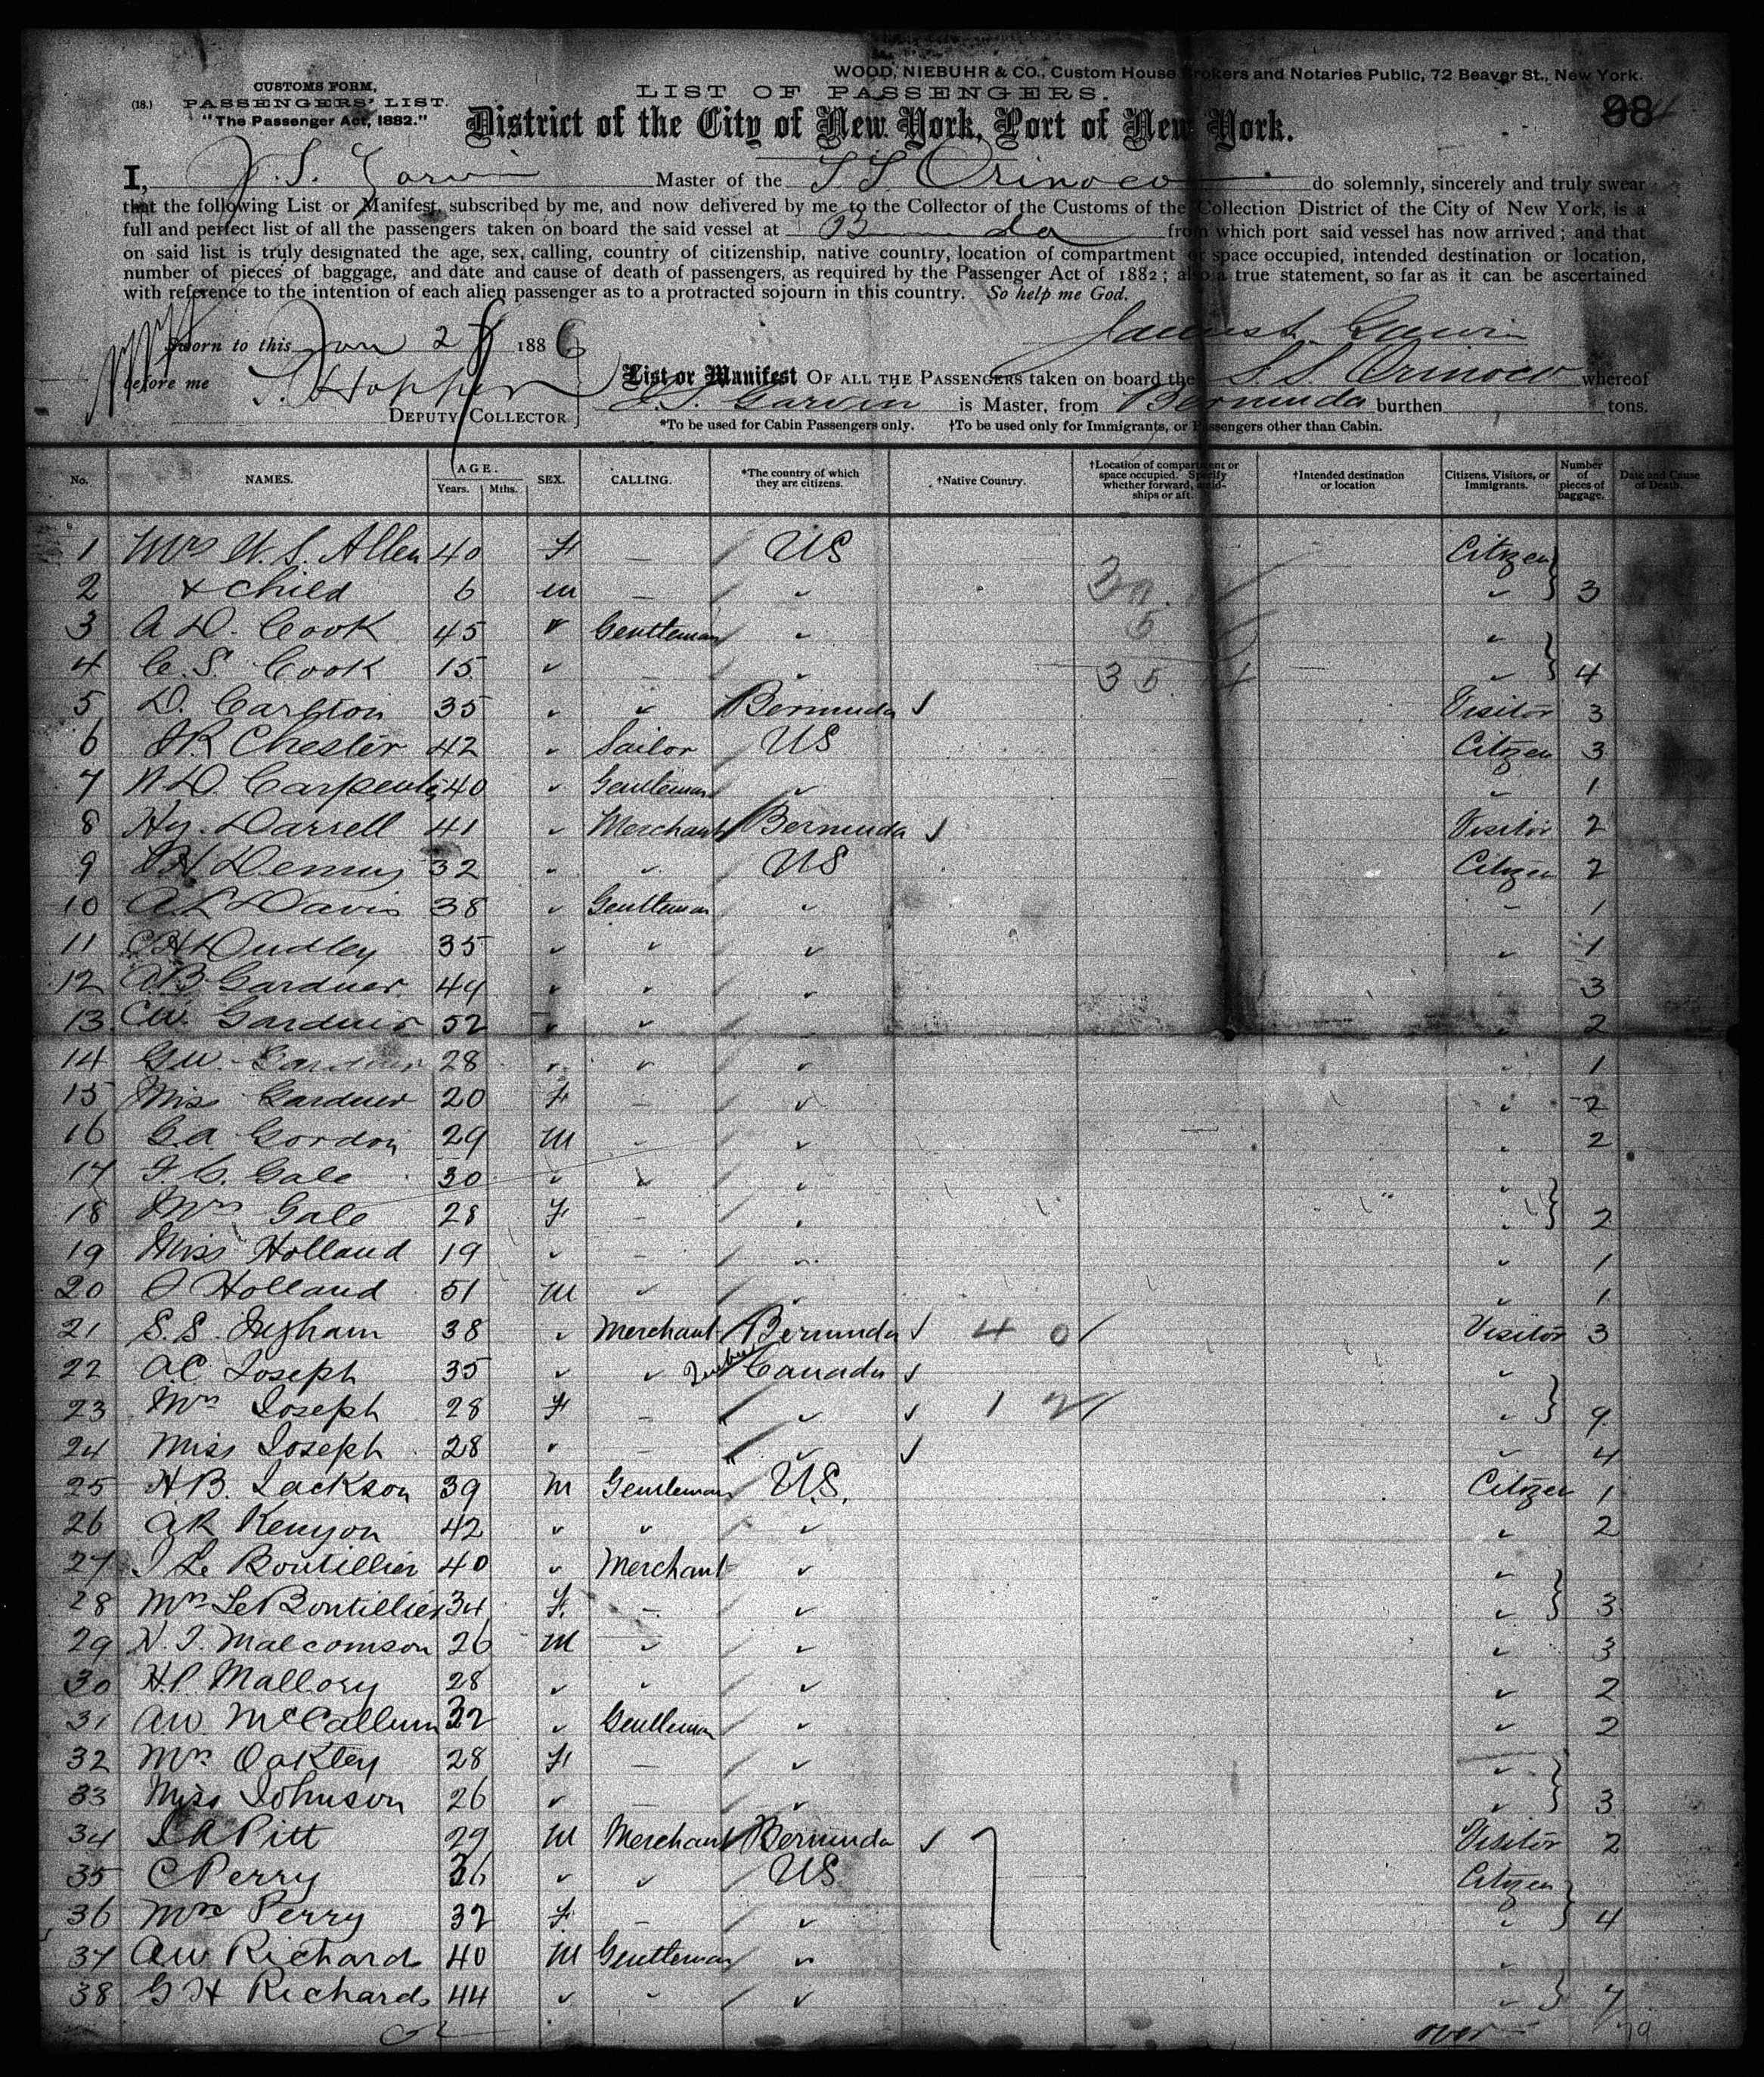 WOOD, NIEBUHR & CO., Custom House Brokers and Notaries Public, 72 Beaver St., New York.
(18.)
CUSTOMS FORM,
PASSENGERS' LIST.
"The Passenger Act, 1882."
LIST OF PASSENGERS.
District of the City of New York, Port of New York.
98
I, J. S. Garvin Master of the SS Orinoco do solemnly, sincerely and truly swear
that the following List or Manifest, subscribed by me, and now delivered by me to the Collector of the Customs of the Collection District of the City of New York, is a
full and perfect list of all the passengers taken on board the said vessel at Bermuda from which port said vessel has now arrived; and that
on said list is truly designated the age, sex, calling, country of citizenship, native country, location of compartment or space occupied, intended destination or location,
number of pieces of baggage, and date and cause of death of passengers, as required by the Passenger Act of 1882; also a true statement, so far as it can be ascertained
with reference to the intention of each alien passenger as to a protracted sojourn in this country. So help me God.
Sworn to this Jan 28 1886
before me
DEPUTY COLLECTOR
List or Manifest OF ALL THE PASSENGERS taken on board the S.S. Orinoco whereof
J.S. Garvin is Master, from Bermuda burthen tons.
*To be used for Cabin Passengers only. †To be used only for Immigrants, or Passengers other than Cabin.
No. NAMES. AGE. Years. Mths. SEX. CALLING. *The country of which they are citizens. †Native Country. †Location of compartment or space occupied. Specify whether forward, amidships or aft. †Intended destination or location Citizens, Visitors, or Immigrants. Number of pieces of baggage. Date and Cause of Death.
1 Mrs W. S. Allen 40 F — US Citizen
2 & child 6 m — " " 3
3 A D. Cook 45 " Gentleman " "
4 C. S. Cook 15 " — " " 4
5 D. Carlton 35 " " Bermuda ✓ Visitor 3
6 JR Chester 42 " Sailor US Citizen 3
7 W D. Carpenter 40 " Gentleman " " 1
8 Hy. Darrell 41 " Merchant Bermuda ✓ Visitor 2
9 32 " " US Citizen 2
10 A L Davis 38 " Gentleman " " 1
11 C H Dudley 35 " " " " 1
12 A B Gardner 49 " " " " 3
13 CW. Gardner 52 " " " 2
14 GW. Gardner 28 " " " " 1
15 Miss Gardner 20 F — " " 2
16 G.A. Gordon 29 M " " " 2
17 F. C. Gale 30 " " " "
18 Mrs Gale 28 F — " " 2
19 Miss Holland 19 " — " " 1
20 J Holland 51 M " " " 1
21 S. S. Ingham 38 " Merchant Bermuda ✓ 40 Visitor 3
22 A.C. Joseph 35 " " Canada ✓ "
23 Mrs Joseph 28 F — " ✓ 12 " 9
24 Miss Joseph 28 " — " ✓ " 4
25 H B. Jackson 39 M Gentleman U.S. Citizen 1
26 A R Kenyon 42 " " " " 2
27 J Le Boutillier 40 " Merchant " "
28 Mrs Le Boutillier 34 F. — " " 3
29 W. J. Malcomson 26 M " " " 3
30 H.P. Mallory 28 " " " " 2
31 AW McCallum 32 " Gentleman " " 2
32 Mrs Oakley 28 F — " "
33 Miss Johnson 26 " — " " 3
34 J A Pitt 29 M Merchant Bermuda ✓ Visitor 2
35 C Perry 36 " " US Citizen
36 Mrs Perry 32 F. — " " 4
37 AW Richards 40 M Gentleman " "
38 G H Richards 44 " " " " 7
over 79